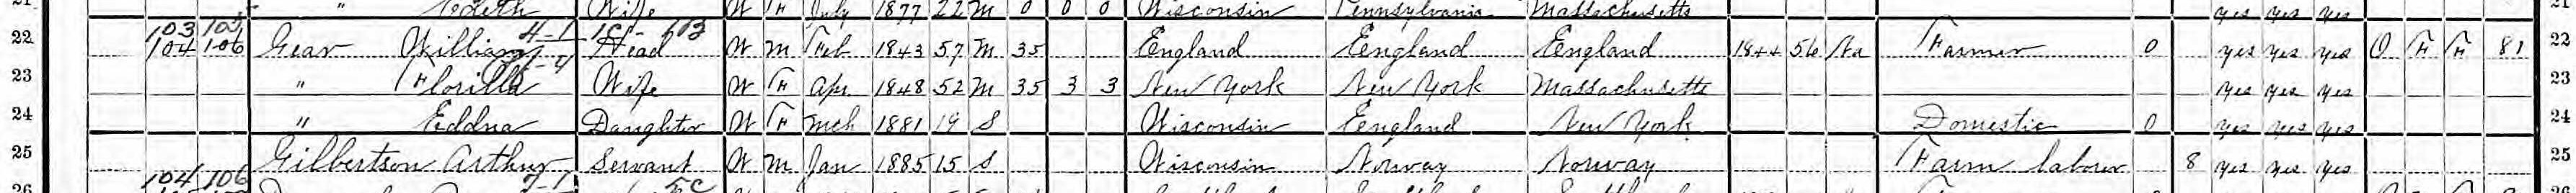 21 " Edith Wife W F July 1877 22 M 0 0 0 Wisconsin Pennsylvania Massachusetts yes yes yes 21
22 103 105 104 106 Gear William 4-1 Head W M Feb 1843 57 M 35 England England England 1844 56 Na Farmer 0 yes yes yes O F F 81 22
23 " Florilla Wife W F Apr 1848 52 M 35 3 3 New York New York Massachusetts yes yes yes 23
24 " Eddna Daughter W F Mch 1881 19 S Wisconsin England New York Domestic 0 yes yes yes 24
25 Gilbertson Arthur Servant W M Jan 1885 15 S Wisconsin Norway Norway Farm labour 8 yes yes yes 25
26 104 106